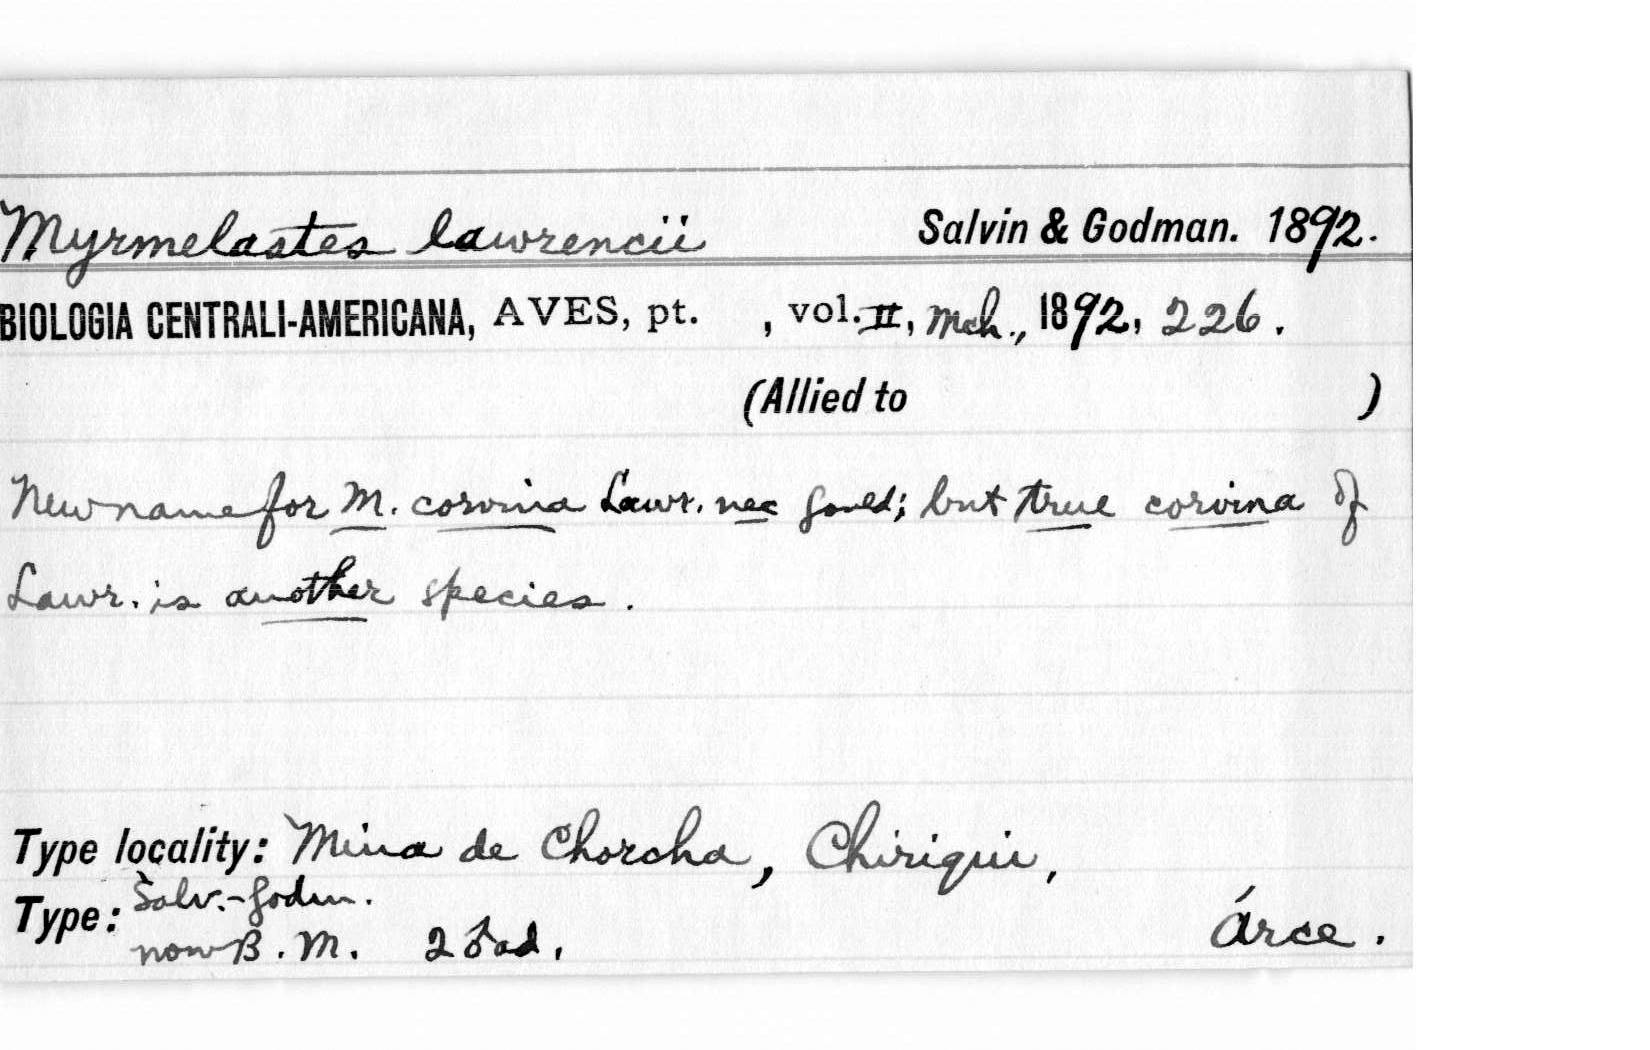 Myrmelastes lawrencii Salvin & Godman. 1892.
BIOLOGIA CENTRALI-AMERICANA, AVES, pt. , vol. II, Mch., 1892, 226.
(Allied to )
New name for M. corvina Lawr. nec Gould; but true corvina of
Lawr. is another species.
Type locality: Mina de Chorcha, Chiriqui,
Salv.-Godm.
Type: Árce.
now B. M. 2 ♂ ad.